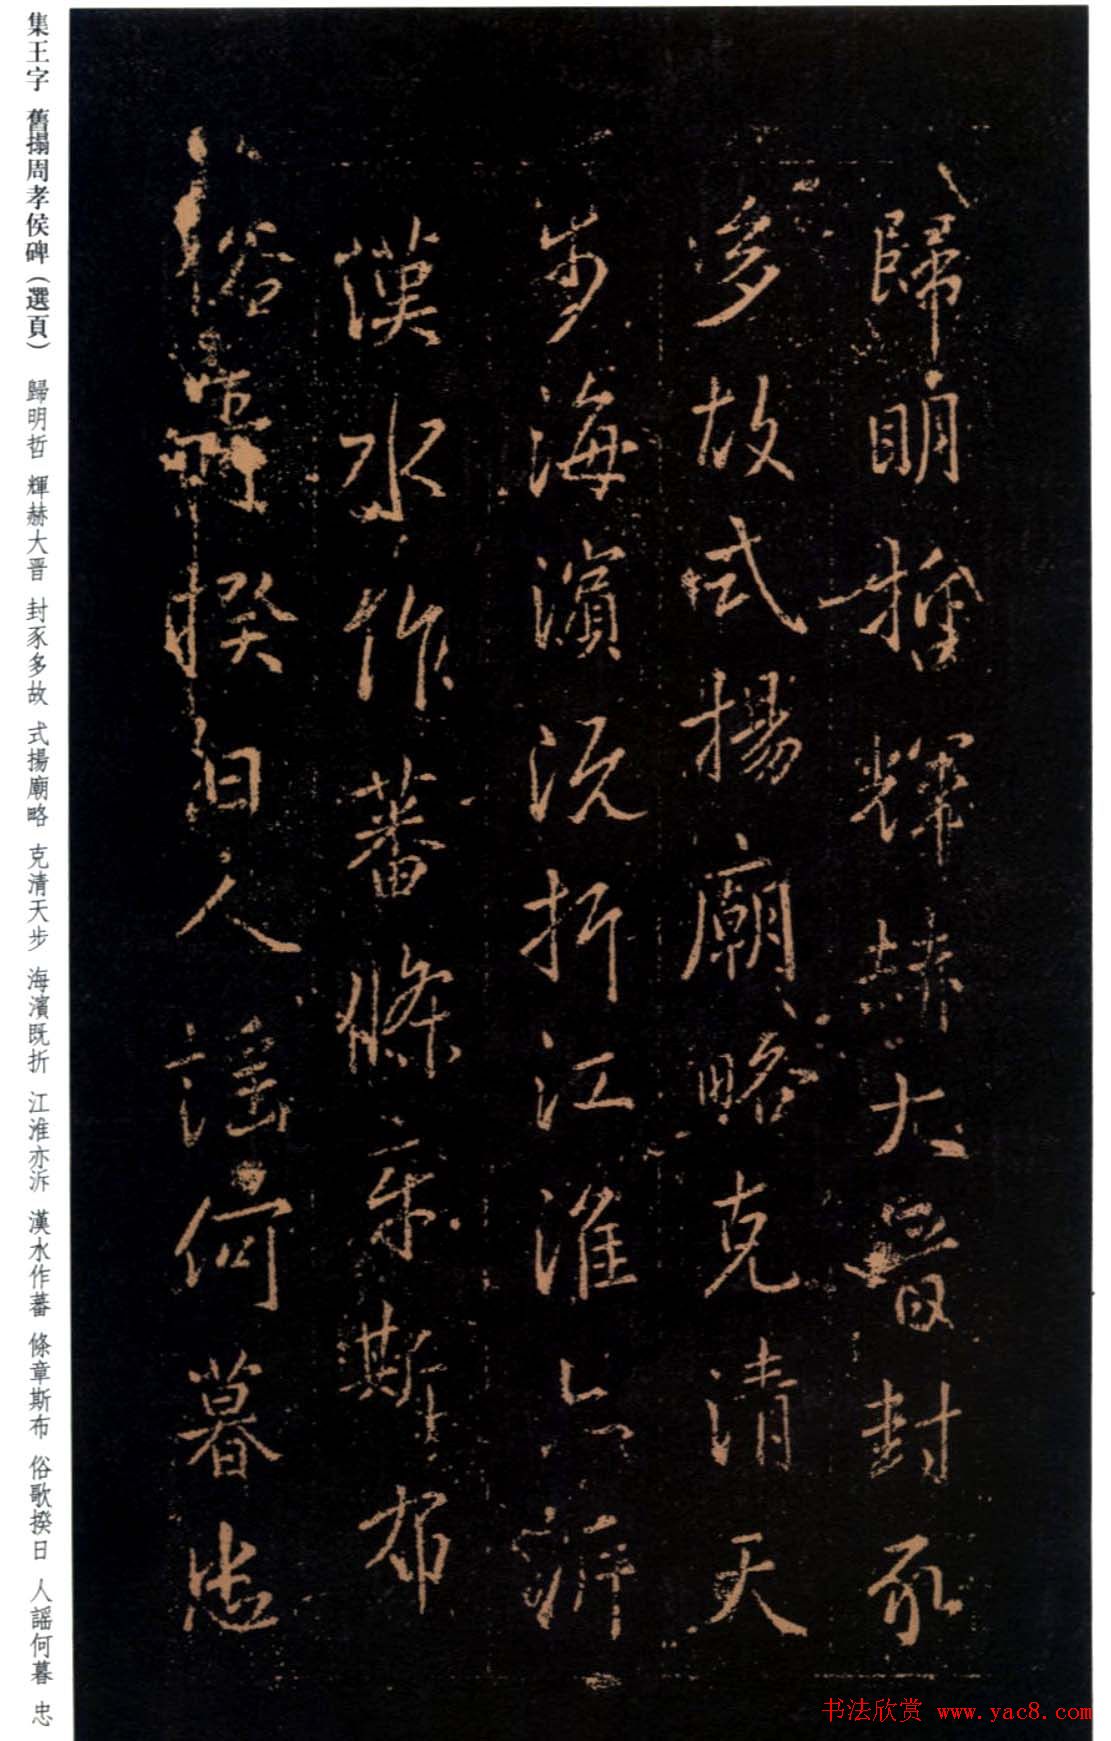 歸明哲輝赫大晉封豕
多故式揚廟略克清天
步海濱既折江淮亦泝
漢水作蕃條章斯布
俗歌揆日人謠何暮忠
集王字 舊搨周孝侯碑（選頁） 歸明哲 輝赫大晋 封豕多故 式揚廟略 克清天步 海濱既折 江淮亦泝 漢水作蕃 條章斯布 俗歌揆日 人謠何暮 忠
书法欣赏 www.yac8.com